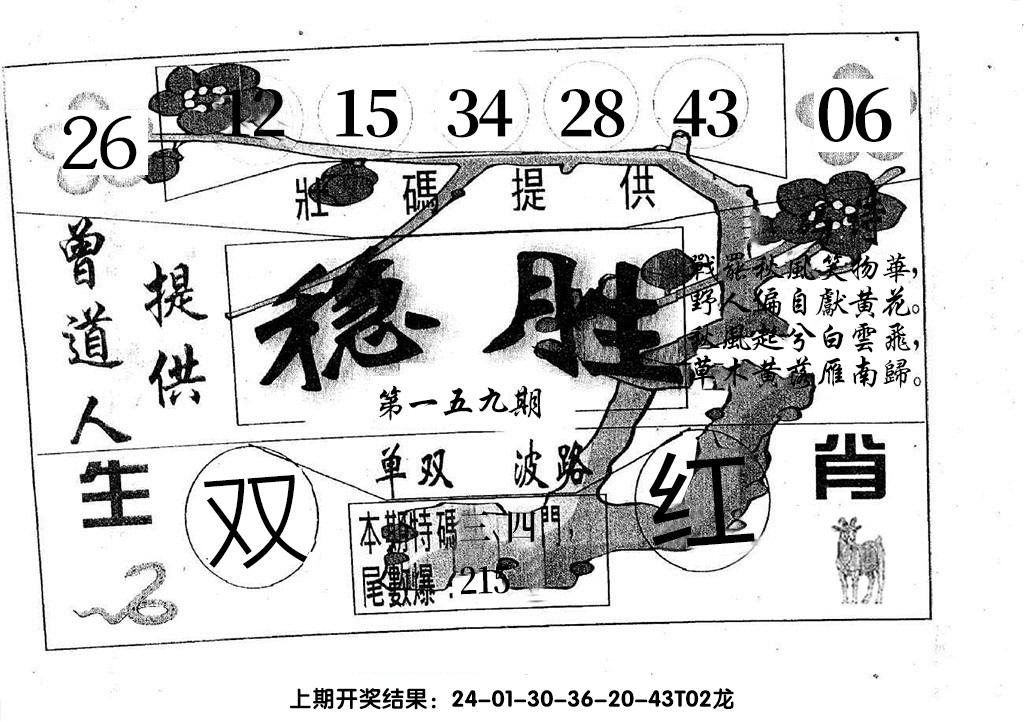 26 12 15 34 28 43 06
壯碼提供
曾道人
提供
稳胜
第一五九期
戰罷秋風笑物華，
野人偏自獻黄花。
秋風起兮白雲飛，
草木黄落雁南歸。
单双 波路
生肖
双
红
本期特碼三、四門，
尾數爆：215
上期开奖结果：24-01-30-36-20-43T02龙